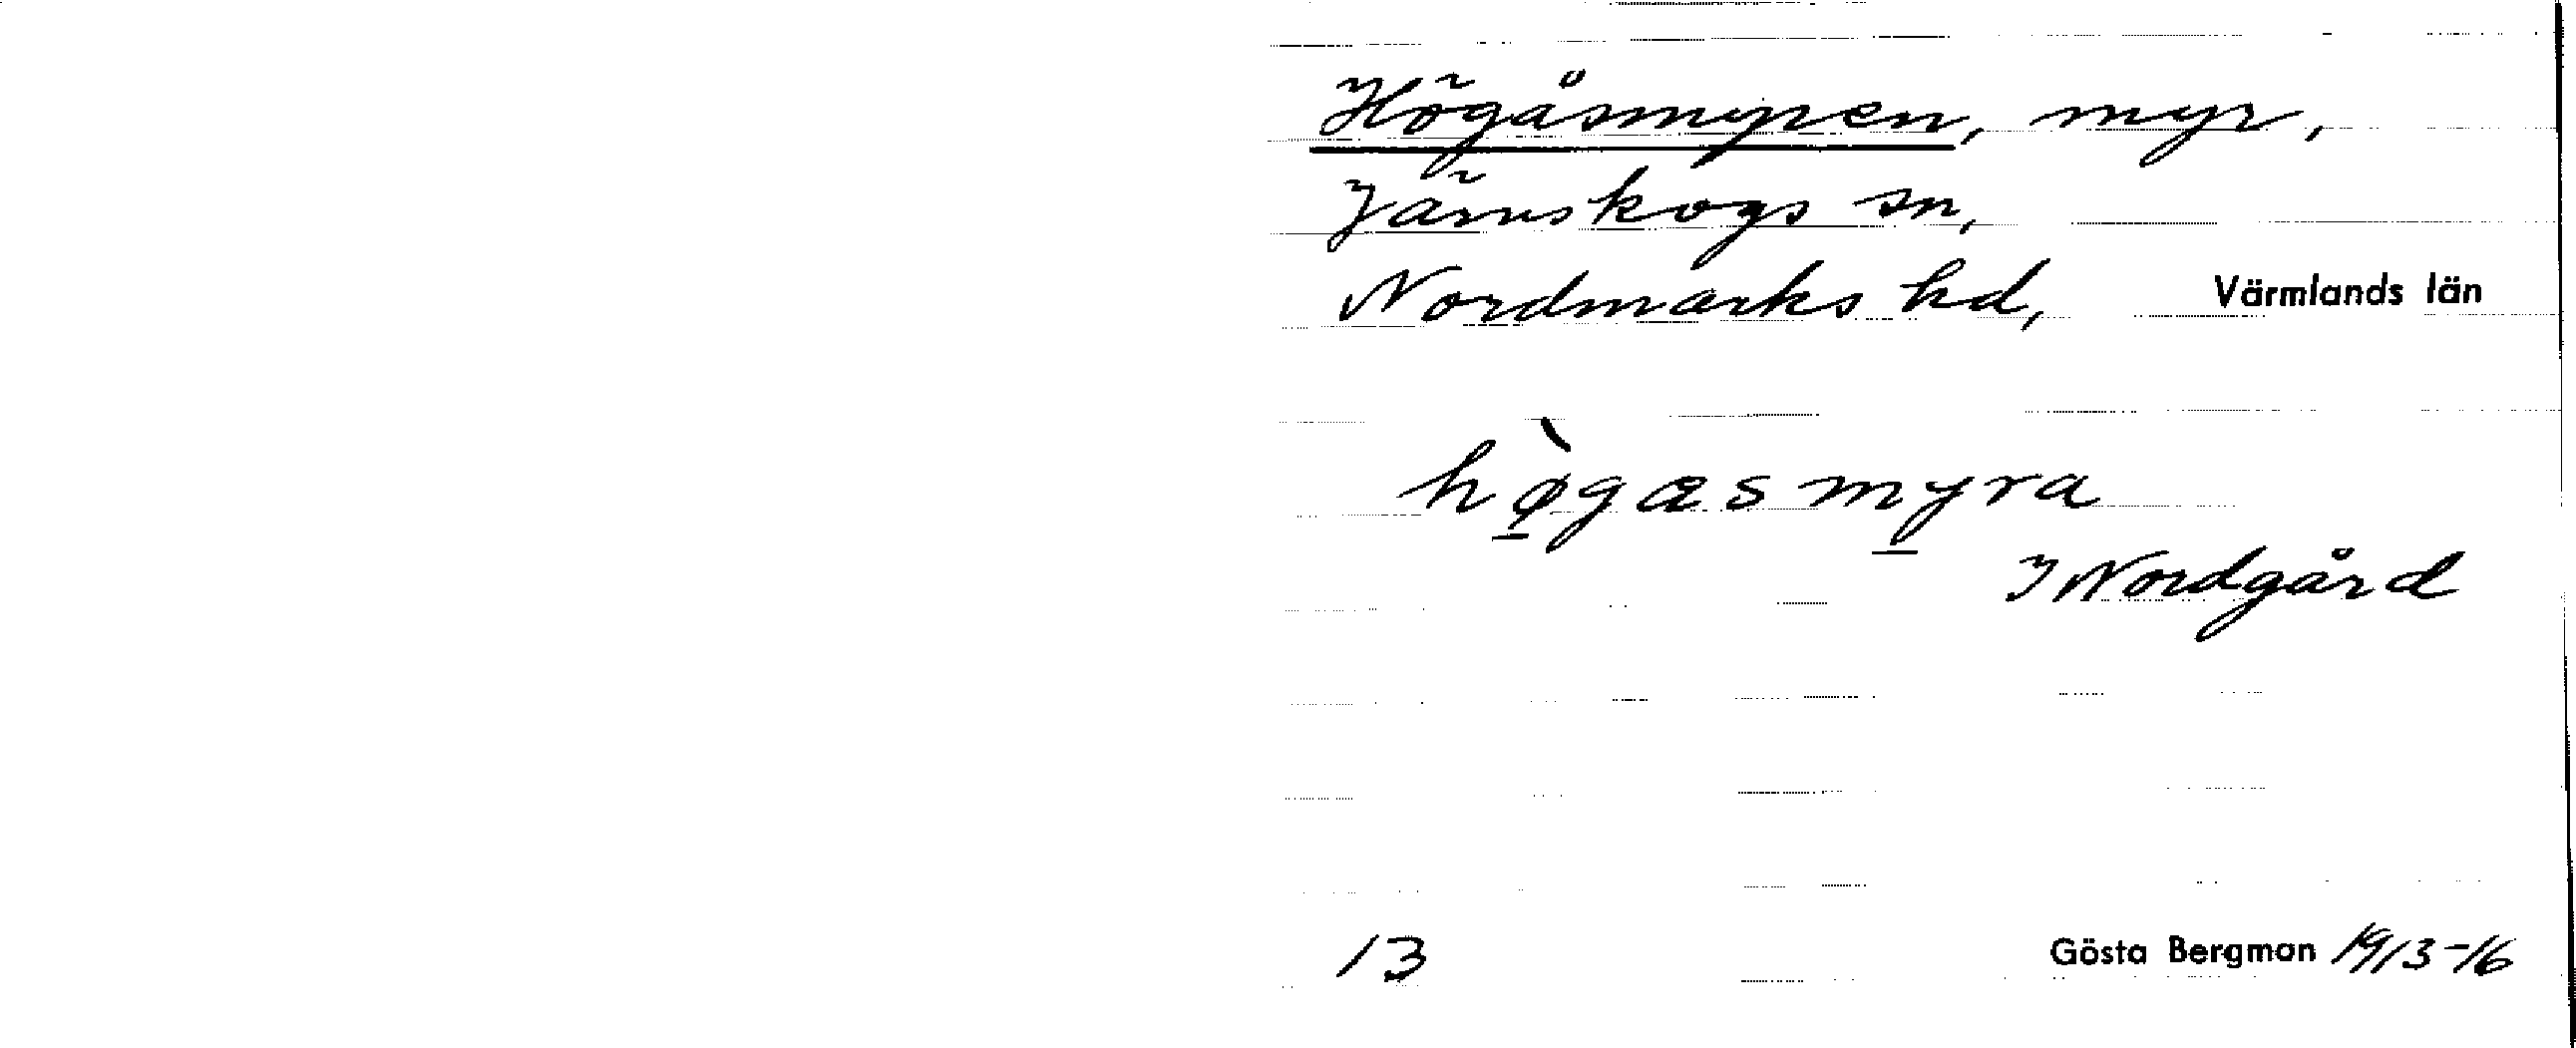 Högåsmyren, myr,
Järnskogs sn,
Nordmarks hd, Värmlands län
hø̲̀gæsmy̲ra
I Nordgård
13 Gösta Bergman 1913-16